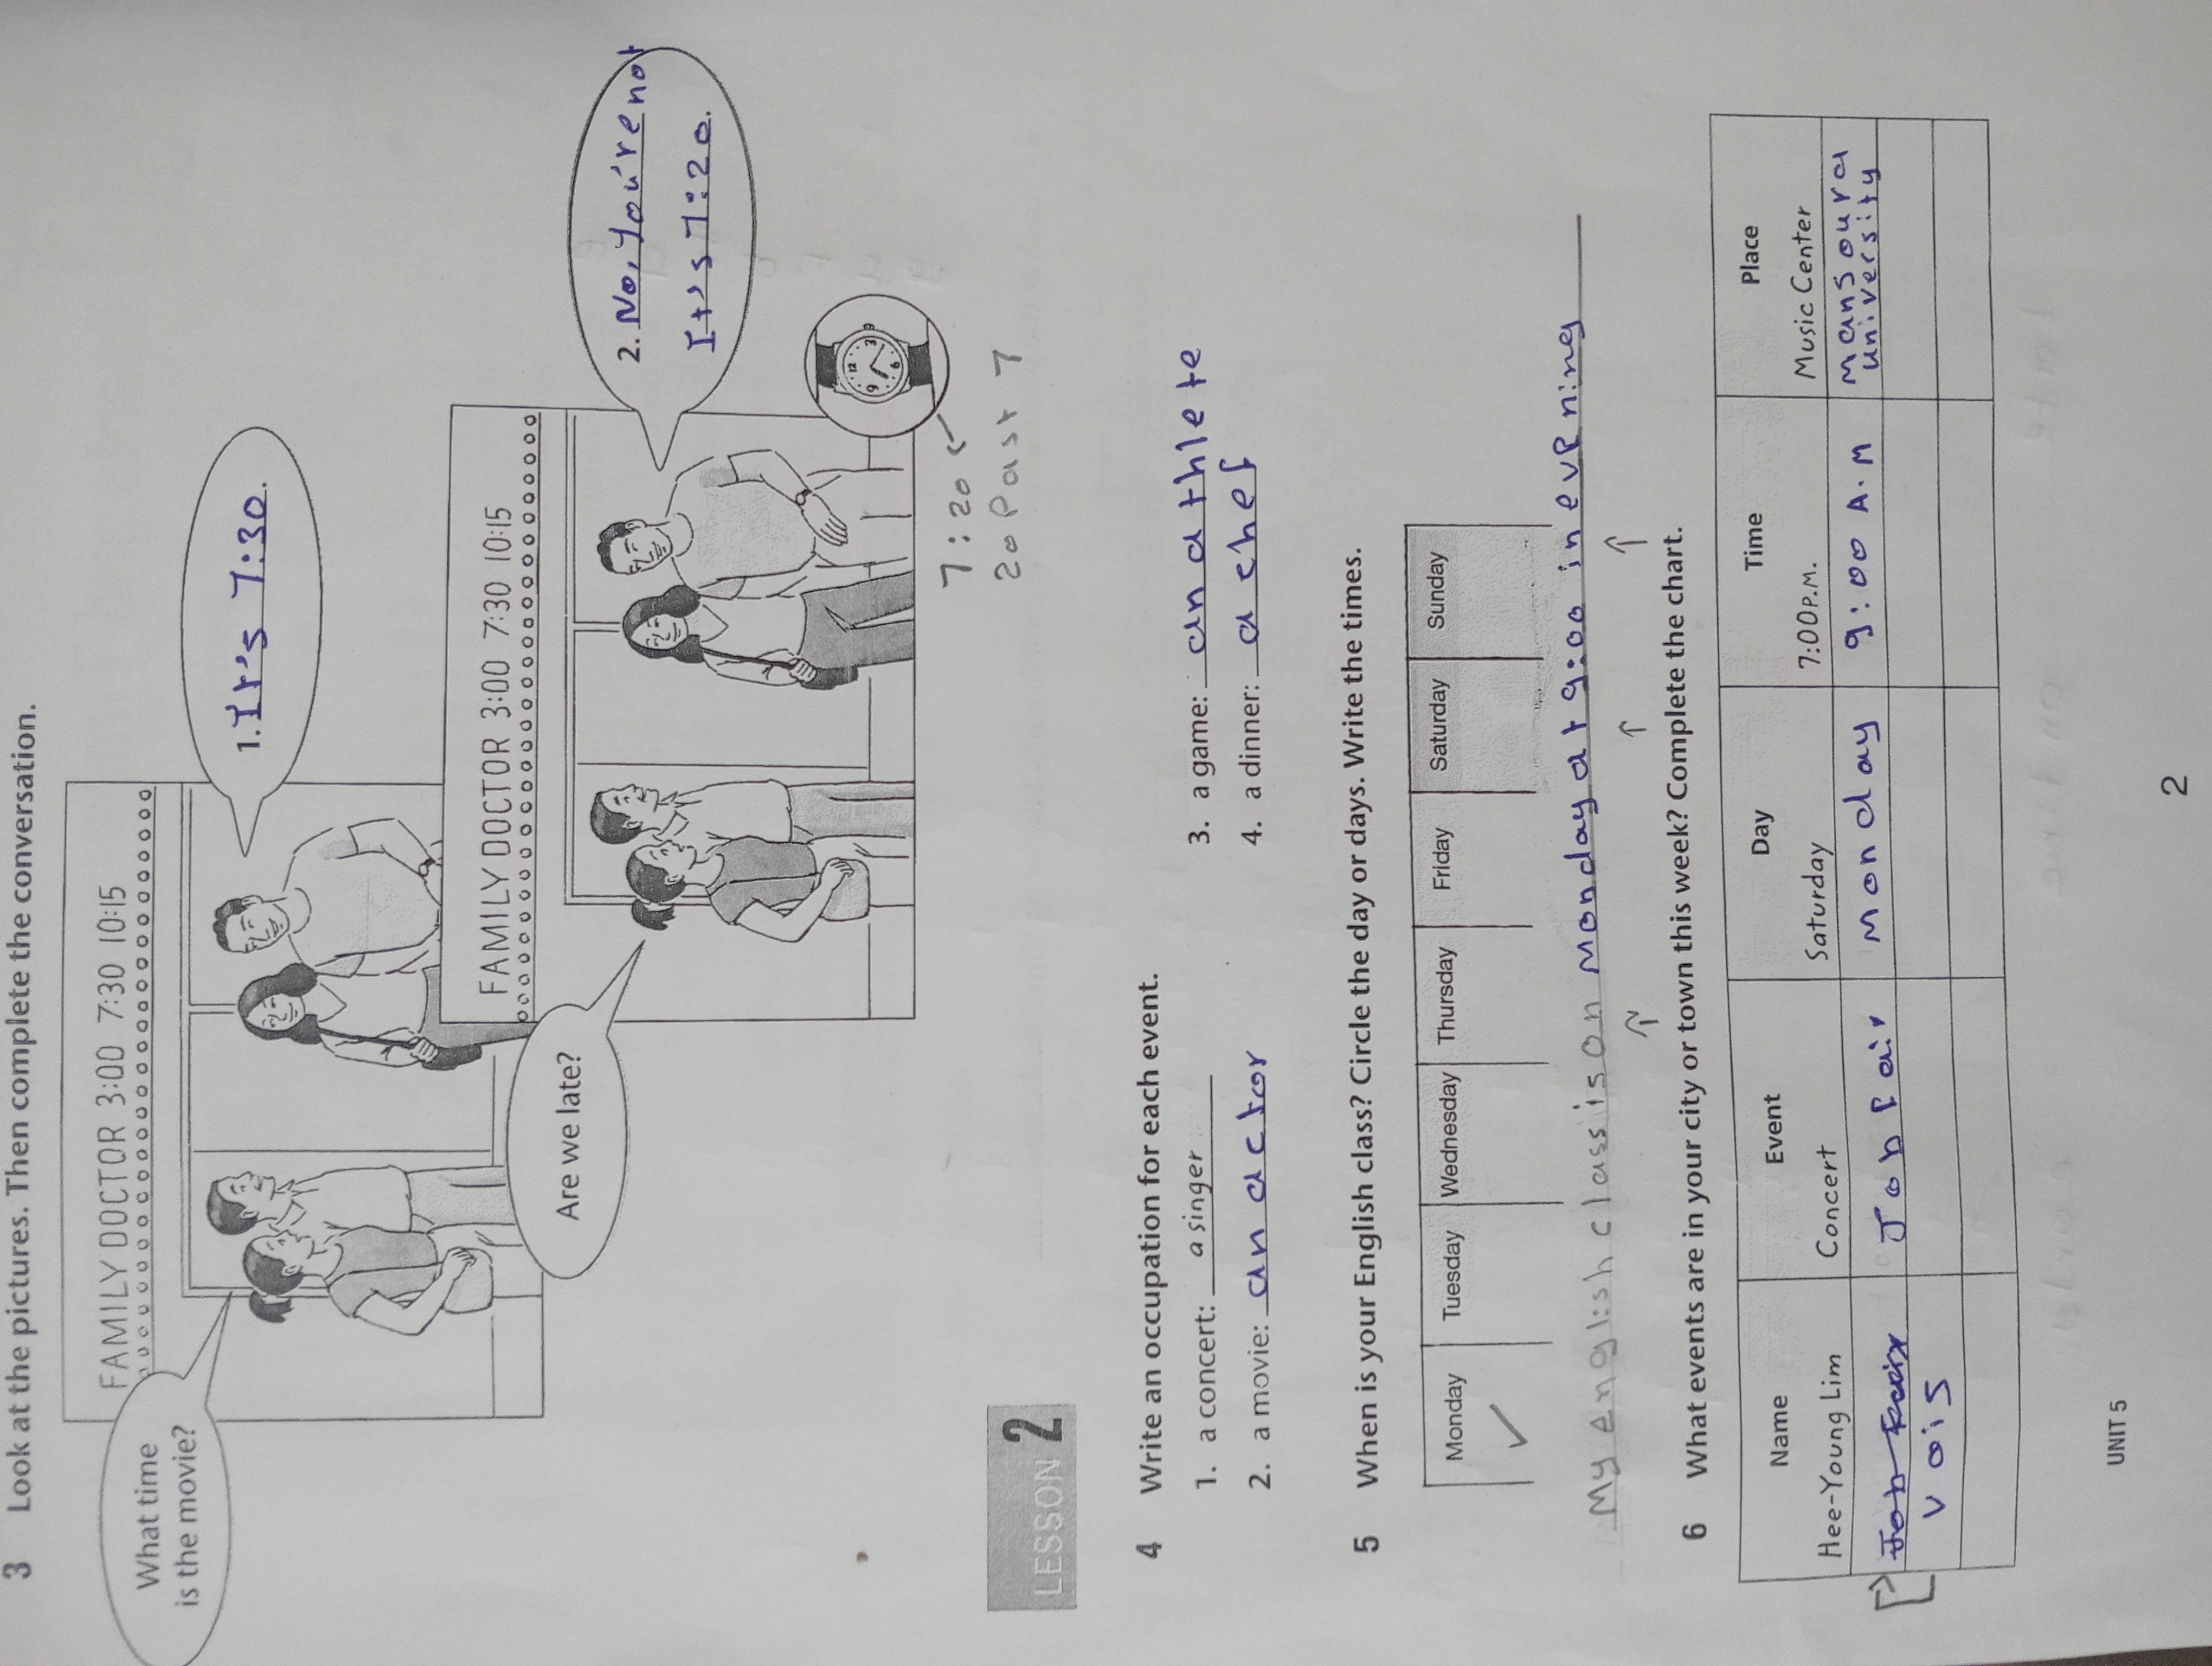 3 Look at the pictures. Then complete the conversation.
FAMILY DOCTOR 3:00 7:30 10:15
What time
is the movie?
1. It's 7:30.
FAMILY DOCTOR 3:00 7:30 10:15
Are we late?
2. No, You're not
It's 7:20.
12
9 3
6
7:20
20 Past 7
LESSON 2
4 Write an occupation for each event.
1. a concert: a singer
2. a movie: an actor
3. a game: an athlete
4. a dinner: a chef
5 When is your English class? Circle the day or days. Write the times.
Monday Tuesday Wednesday Thursday Friday Saturday Sunday
My english class is on monday at 9:00 in evening
6 What events are in your city or town this week? Complete the chart.
Name Event Day Time Place
Hee-Young Lim Concert Saturday 7:00 P.M. Music Center
Job Fair Job fair monday 9:00 A.M mansoura
university
Vois
UNIT 5
2